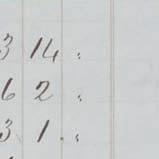 3 14 "
6 2 "
3 1. "